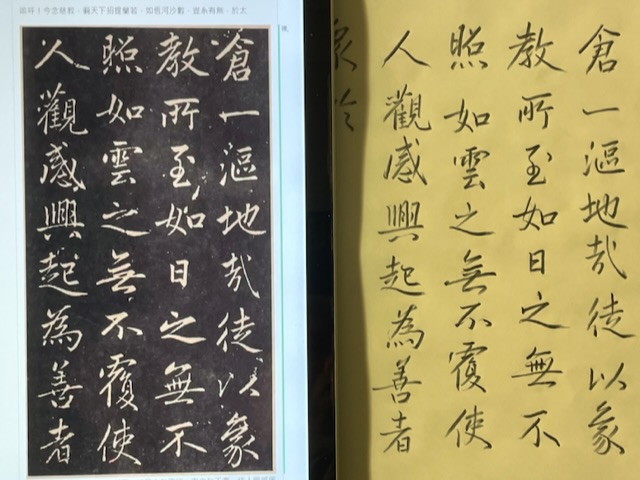 天下招提蘭若，如恆河沙數，
倉一漚地哉徒以象
教所至如日之無不
照如雲之無不覆使
人觀感興起為善者
倉一漚地哉徒以象
教所至如日之無不
照如雲之無不覆使
人觀感興起為善者